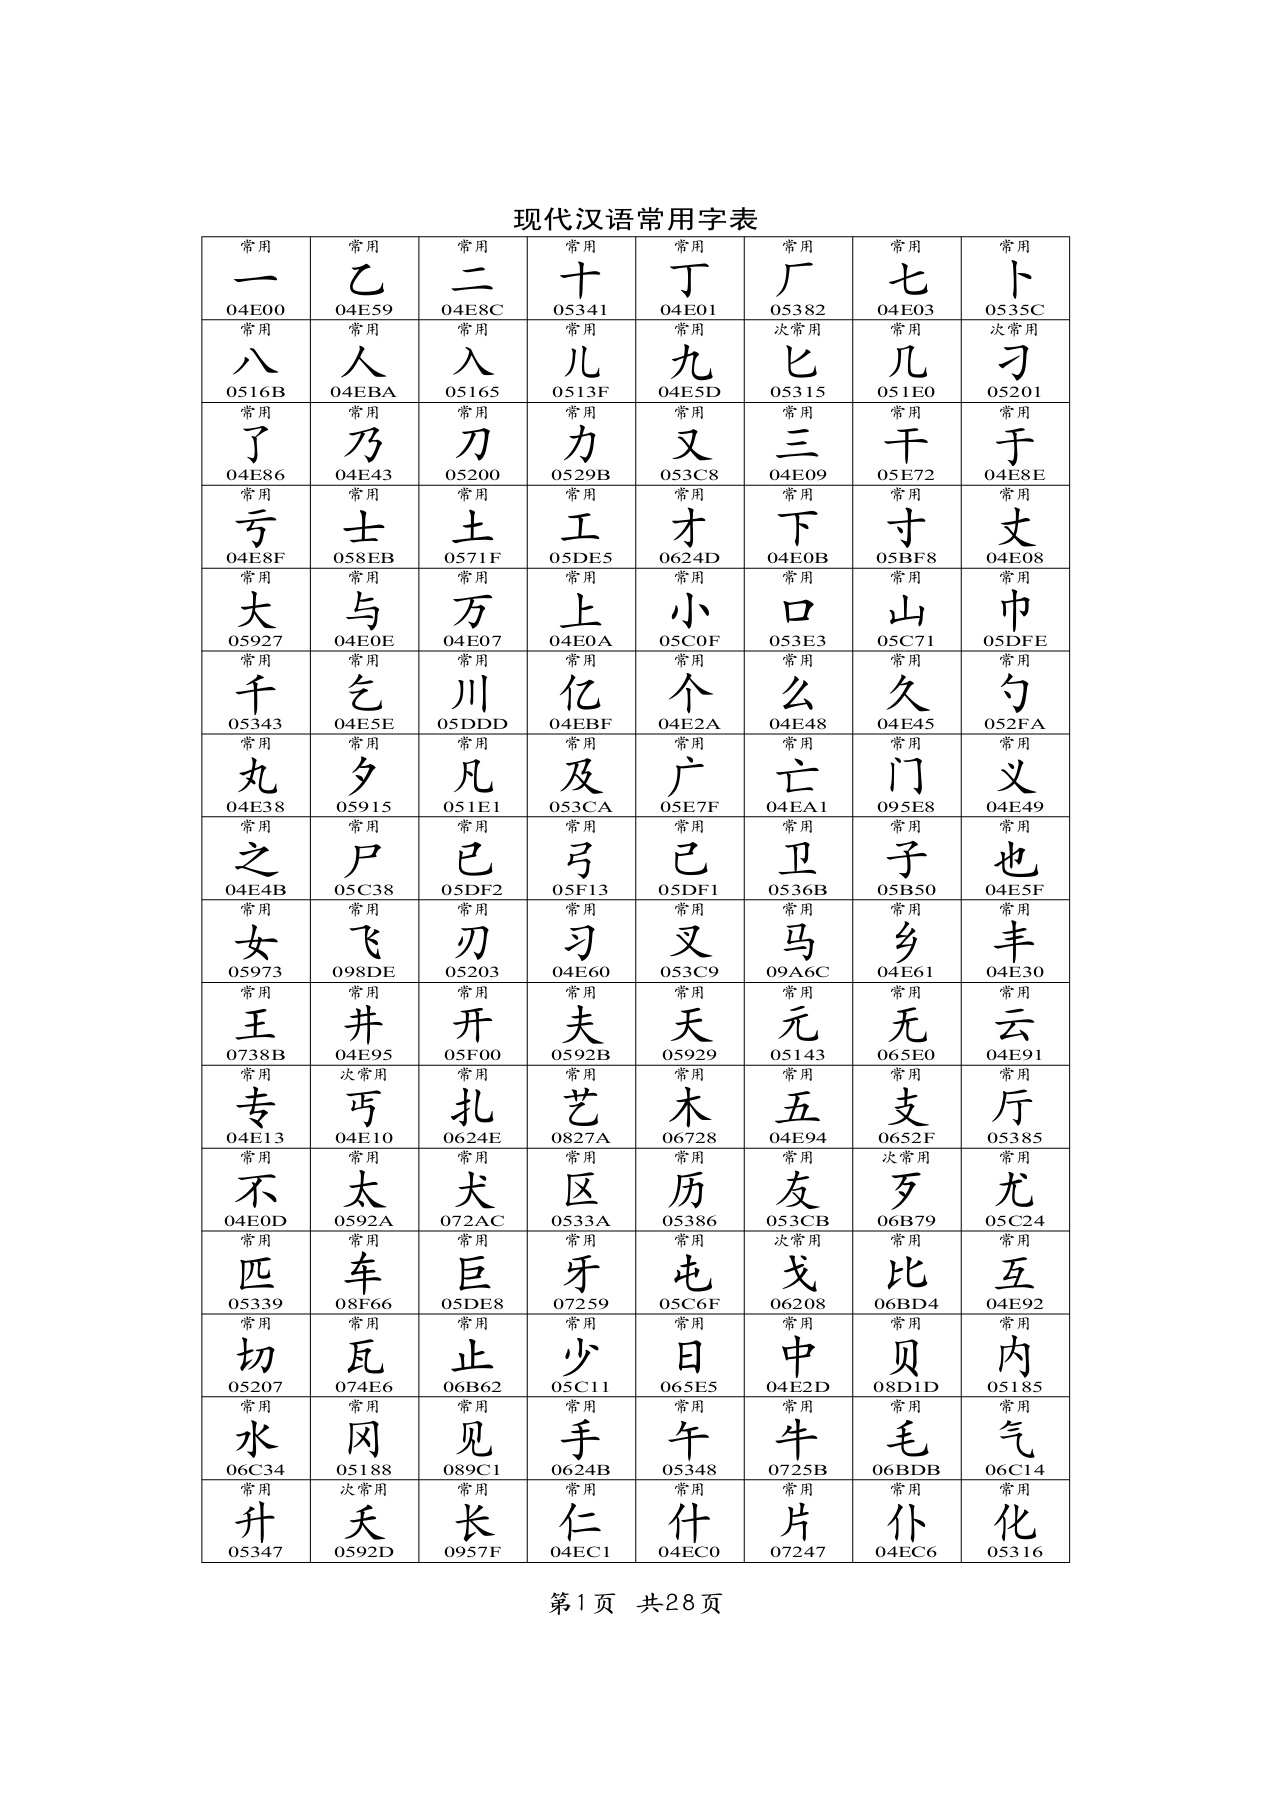 现代汉语常用字表
常用 常用 常用 常用 常用 常用 常用 常用
一 乙 二 十 丁 厂 七 卜
04E00 04E59 04E8C 05341 04E01 05382 04E03 0535C
常用 常用 常用 常用 常用 次常用 常用 次常用
八 人 入 儿 九 匕 几 刁
0516B 04EBA 05165 0513F 04E5D 05315 051E0 05201
常用 常用 常用 常用 常用 常用 常用 常用
了 乃 刀 力 又 三 干 于
04E86 04E43 05200 0529B 053C8 04E09 05E72 04E8E
常用 常用 常用 常用 常用 常用 常用 常用
亏 士 土 工 才 下 寸 丈
04E8F 058EB 0571F 05DE5 0624D 04E0B 05BF8 04E08
常用 常用 常用 常用 常用 常用 常用 常用
大 与 万 上 小 口 山 巾
05927 04E0E 04E07 04E0A 05C0F 053E3 05C71 05DFE
常用 常用 常用 常用 常用 常用 常用 常用
千 乞 川 亿 个 么 久 勺
05343 04E5E 05DDD 04EBF 04E2A 04E48 04E45 052FA
常用 常用 常用 常用 常用 常用 常用 常用
丸 夕 凡 及 广 亡 门 义
04E38 05915 051E1 053CA 05E7F 04EA1 095E8 04E49
常用 常用 常用 常用 常用 常用 常用 常用
之 尸 已 弓 己 卫 子 也
04E4B 05C38 05DF2 05F13 05DF1 0536B 05B50 04E5F
常用 常用 常用 常用 常用 常用 常用 常用
女 飞 刃 习 叉 马 乡 丰
05973 098DE 05203 04E60 053C9 09A6C 04E61 04E30
常用 常用 常用 常用 常用 常用 常用 常用
王 井 开 夫 天 元 无 云
0738B 04E95 05F00 0592B 05929 05143 065E0 04E91
常用 次常用 常用 常用 常用 常用 常用 常用
专 丐 扎 艺 木 五 支 厅
04E13 04E10 0624E 0827A 06728 04E94 0652F 05385
常用 常用 常用 常用 常用 常用 次常用 常用
不 太 犬 区 历 友 歹 尤
04E0D 0592A 072AC 0533A 05386 053CB 06B79 05C24
常用 常用 常用 常用 常用 次常用 常用 常用
匹 车 巨 牙 屯 戈 比 互
05339 08F66 05DE8 07259 05C6F 06208 06BD4 04E92
常用 常用 常用 常用 常用 常用 常用 常用
切 瓦 止 少 日 中 贝 内
05207 074E6 06B62 05C11 065E5 04E2D 08D1D 05185
常用 常用 常用 常用 常用 常用 常用 常用
水 冈 见 手 午 牛 毛 气
06C34 05188 089C1 0624B 05348 0725B 06BDB 06C14
常用 次常用 常用 常用 常用 常用 常用 常用
升 夭 长 仁 什 片 仆 化
05347 0592D 0957F 04EC1 04EC0 07247 04EC6 05316
第1页 共28页